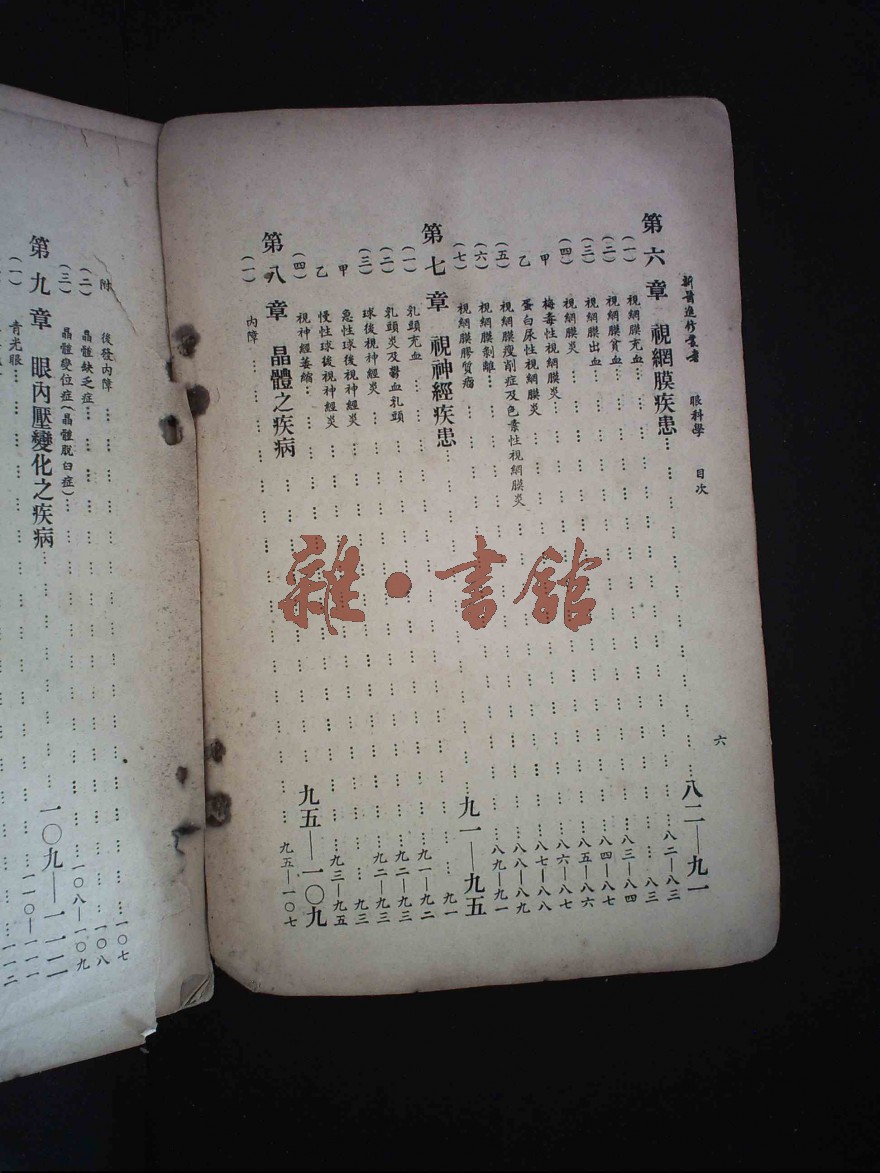 新醫進修叢書 眼科學 目次 六
第六章 視網膜疾患……八二—九一
(一) 視網膜充血……八二—八三
(二) 視網膜貧血……八三
(三) 視網膜出血……八三—八四
(四) 視網膜炎……八四—八七
甲 梅毒性視網膜炎……八五—八六
乙 蛋白尿性視網膜炎……八六—八七
(五) 視網膜瘦削症及色素性視網膜炎……八七—八八
(六) 視網膜剝離……八八—八九
(七) 視網膜膠質瘤……八九—九一
第七章 視神經疾患……九一—九五
(一) 乳頭充血……九一
(二) 乳頭炎及鬱血乳頭……九一—九二
(三) 球後視神經炎……九二—九三
甲 急性球後視神經炎……九二—九三
乙 慢性球後視神經炎……九三
(四) 視神經萎縮……九三—九五
第八章 晶體之疾病……九五—一〇九
(一) 內障……九五—一〇七
附 後發內障……一〇七
(二) 晶體缺乏症……一〇八
(三) 晶體變位症(晶體脫臼症)……一〇八—一〇九
第九章 眼內壓變化之疾病……一〇九—一一二
(一) 青光眼……一一〇—一一一
一一二
雜·書館